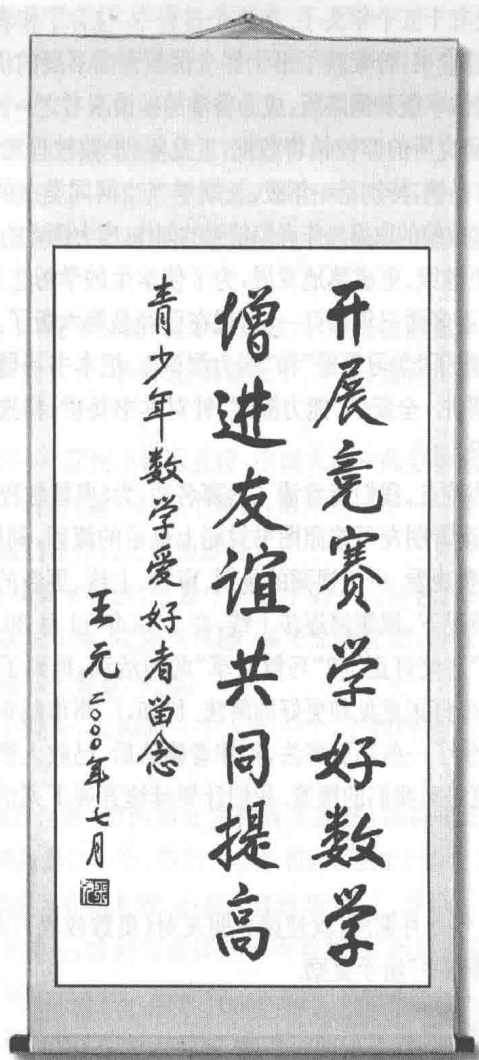 开展竞赛学好数学
增进友谊共同提高
青少年数学爱好者留念
王元 二〇〇〇年七月